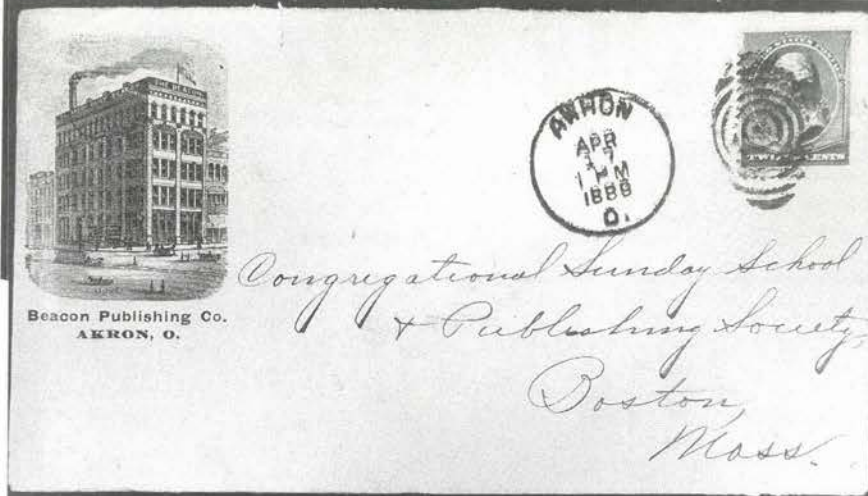 THE BEACON
Beacon Publishing Co.
AKRON, O.
AKRON
APR
7
1 PM
1889
O.
TWO CENTS
Congregational Sunday School
& Publishing Society,
Boston,
Mass.